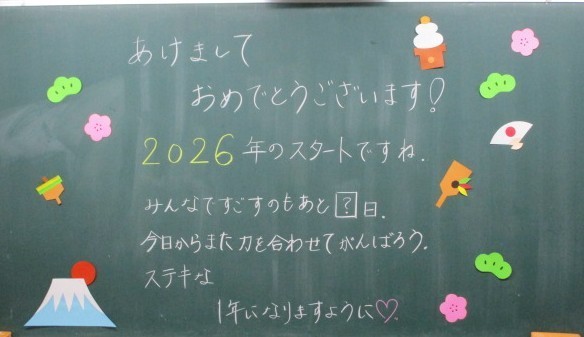 あけまして
おめでとうございます!
2026年のスタートですね.
みんなですごすのもあと?日.
今日からまた力を合わせてがんばろう.
ステキな
1年になりますように♡